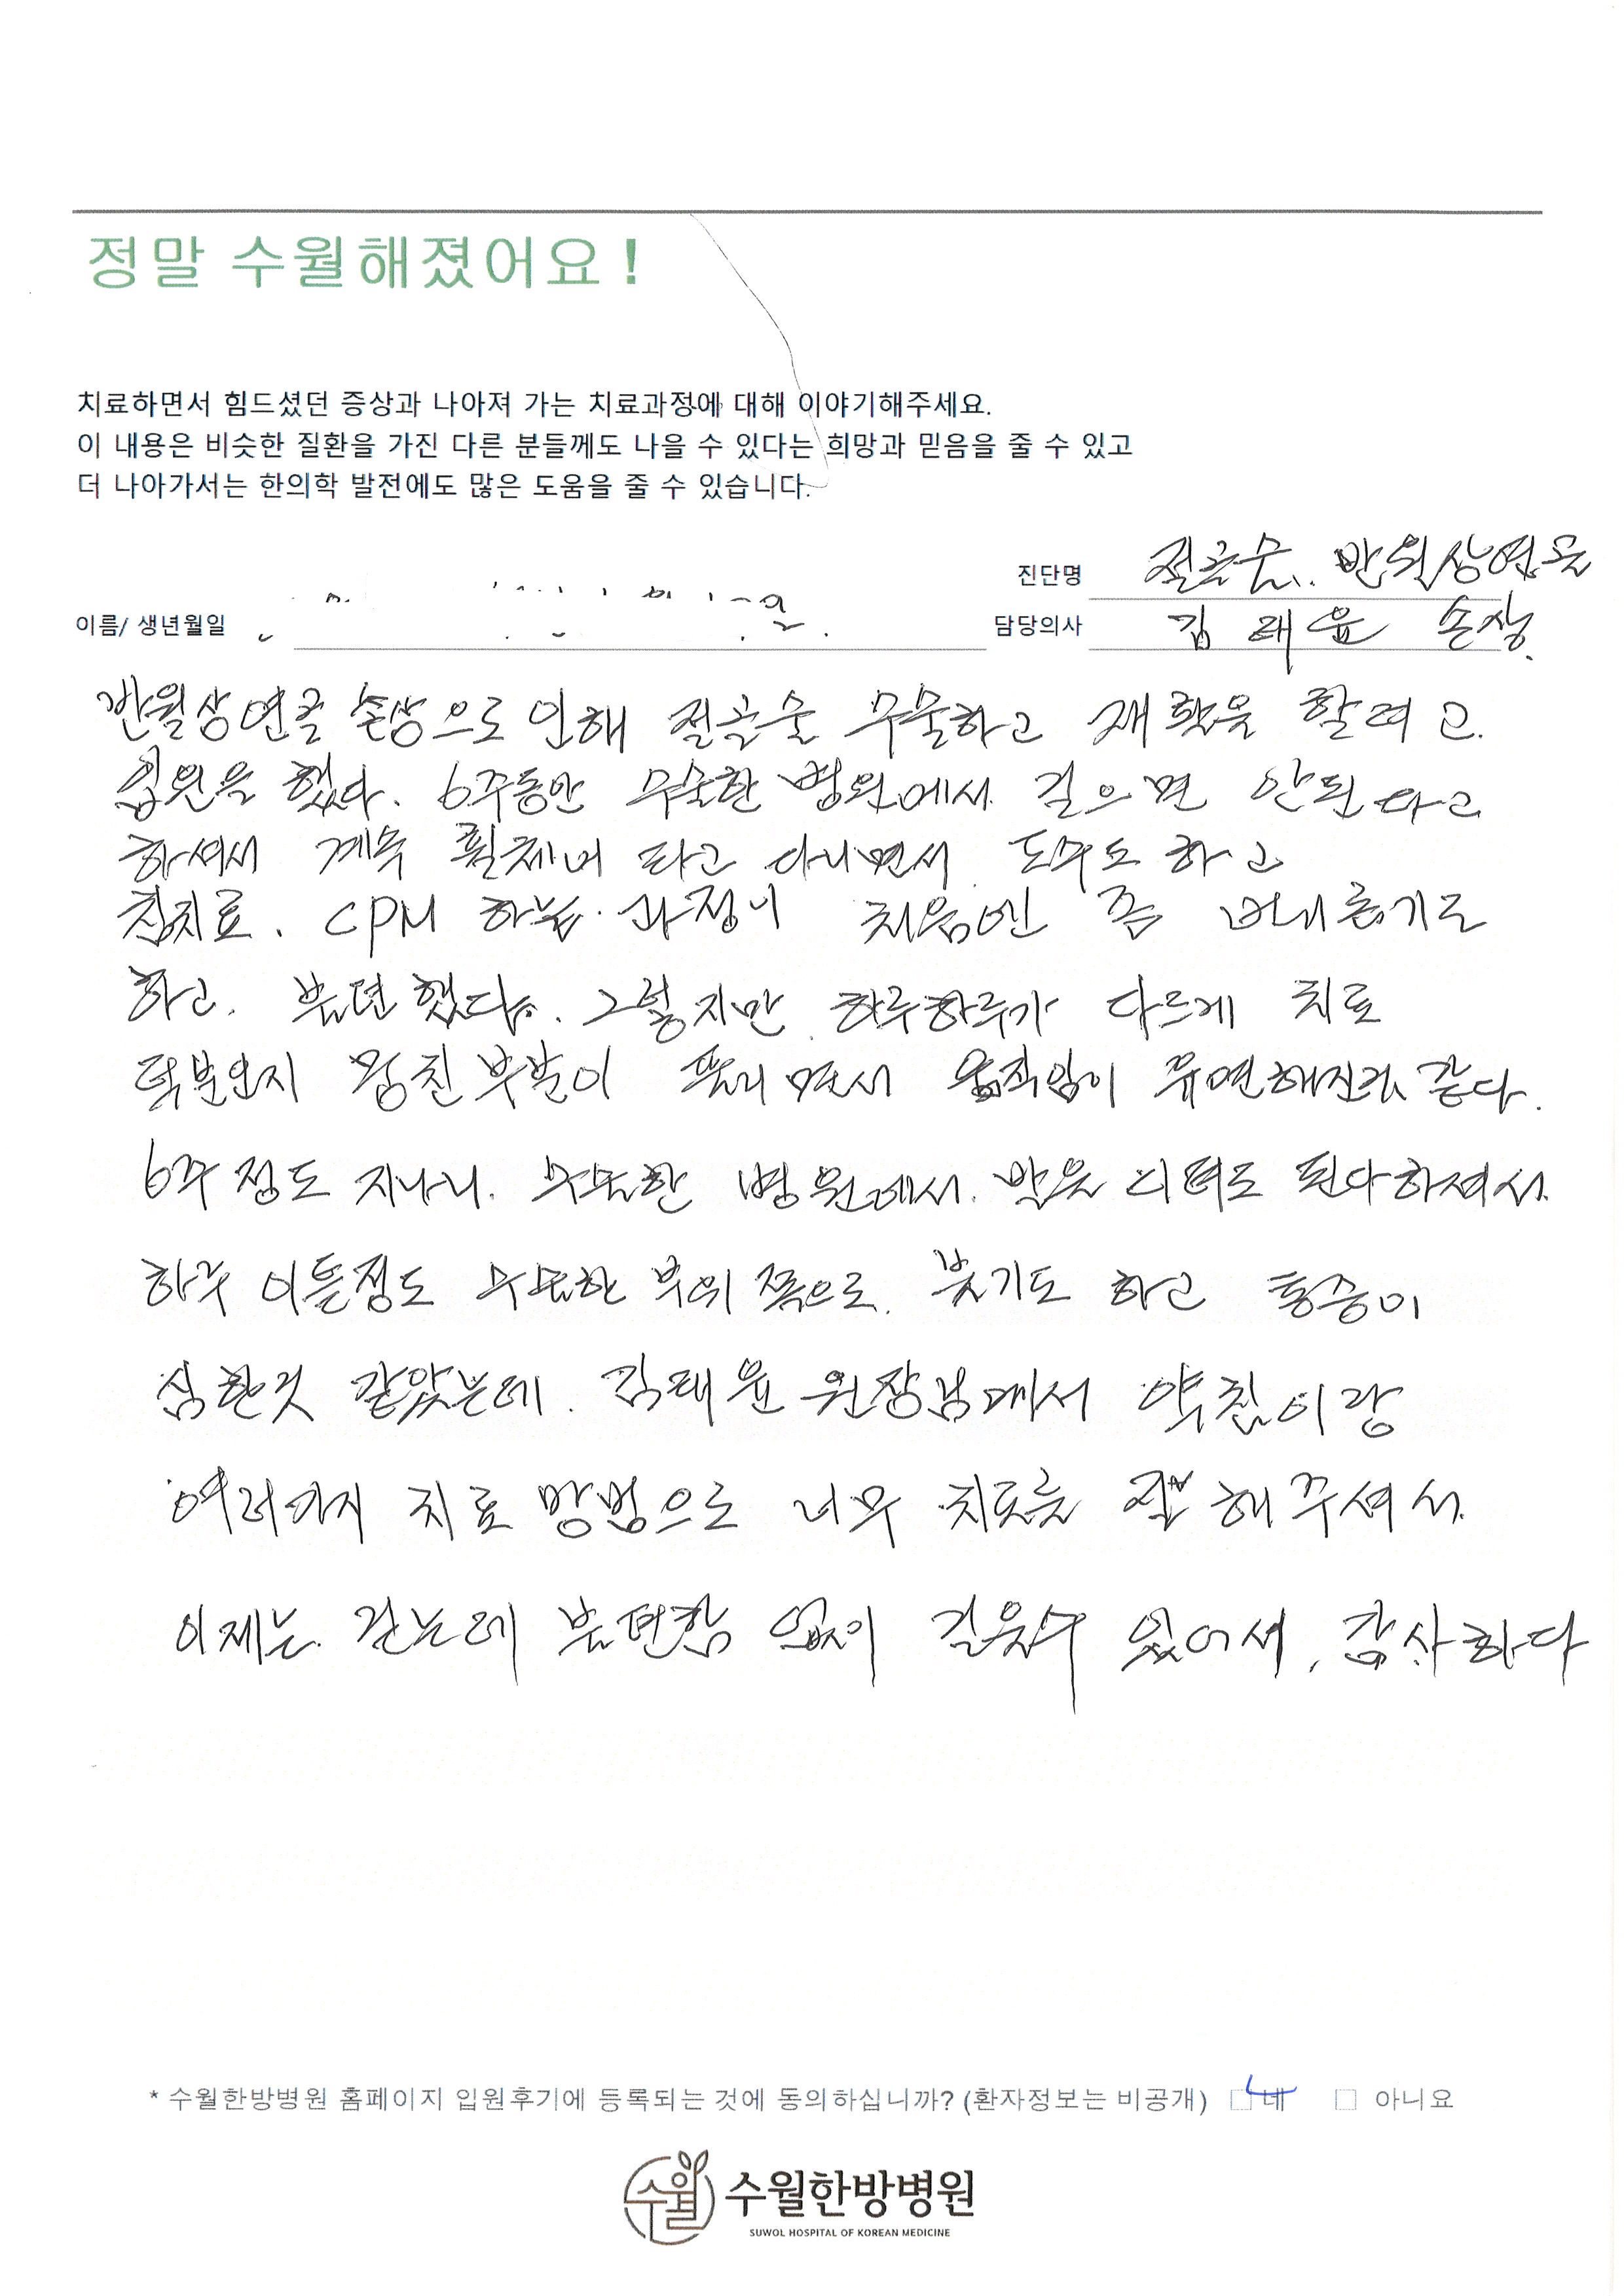 정말 수월해졌어요!
치료하면서 힘드셨던 증상과 나아져 가는 치료과정에 대해 이야기해주세요.
이 내용은 비슷한 질환을 가진 다른 분들께도 나을 수 있다는 희망과 믿음을 줄 수 있고
더 나아가서는 한의학 발전에도 많은 도움을 줄 수 있습니다.
진단명 절골술. 반월상연골
이름/ 생년월일 담당의사 김태윤 손상.
반월상연골 손상으로 인해 절골술 수술하고 재활을 할려고
입원을 했다. 6주동안 수술한 병원에서 걸으면 안된다고
하셔서 계속 휠체어 타고 다니면서 도수도 하고
침치료. CPM 하는 과정이 처음엔 좀 버겁기도
하고. 불편했다. 그렇지만 하루하루가 다르게 치료
덕분인지 뭉친부분이 풀리면서 움직임이 유연해진거 같다.
6주정도 지나니. 수술한 병원에서. 발을 디뎌도 된다하셔서.
하루 이틀정도 수술한 부위 쪽으로. 붓기도 하고 통증이
심한것 같았는데. 김태윤 원장님께서 약침이랑
여러가지 치료 방법으로 너무 치료를 잘 해주셔서.
이제는 걷는데 불편함 없이 걸을수 있어서. 감사하다
* 수월한방병원 홈페이지 입원후기에 등록되는 것에 동의하십니까? (환자정보는 비공개) □ 네 □ 아니요
수월 수월한방병원
SUWOL HOSPITAL OF KOREAN MEDICINE